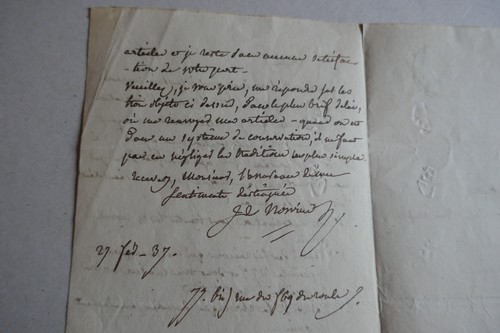 articles et je reste sans aucune satisfac-
-tion de votre part.
Veuillez, je vous prie, me répondre sur les
trois objets ci dessus, dans le plus bref délai,
ou me renvoyer mes articles - quand on est
dans un système de conservation, il ne faut
pas en négliger les traditions les plus simples
recevez, Monsieur, l'assurance de mes
Sentiments distingués
J. de Norvins
27. fév - 37.
77. bis rue du fbg du roule